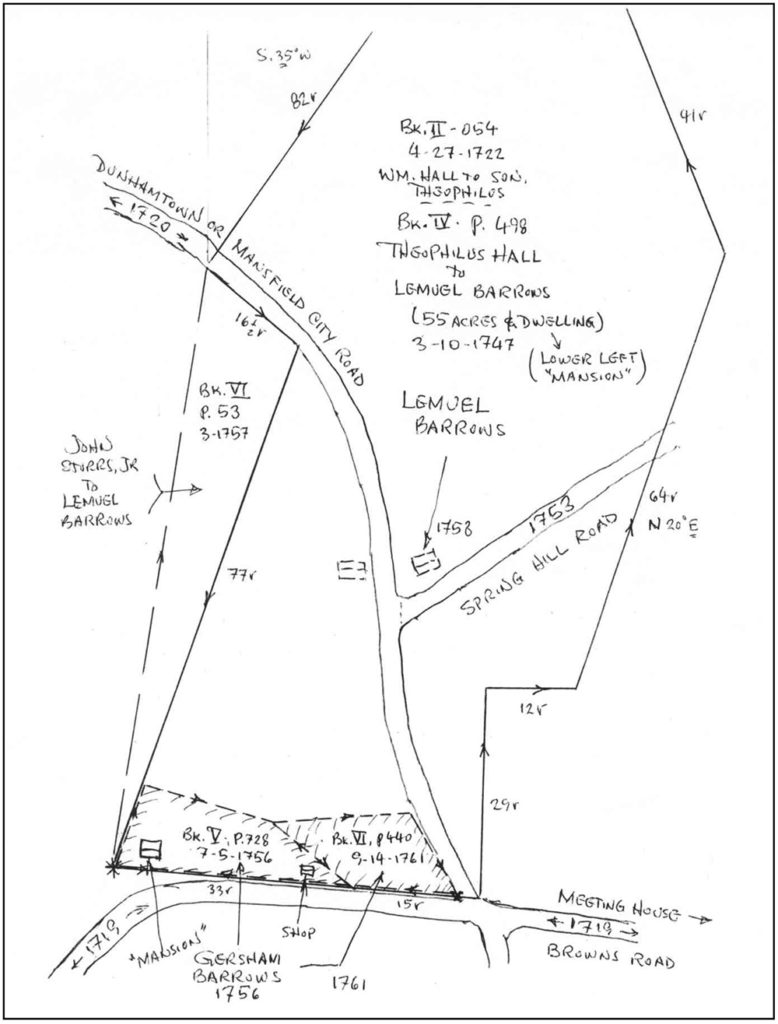 S. 35° W
82r
41r
BK. II - 054
4-27-1722
WM. HALL TO SON,
THEOPHILUS
BK. IV. P. 498
THEOPHILUS HALL
TO
LEMUEL BARROWS
(55 ACRES & DWELLING)
3-10-1747
(LOWER LEFT)
"MANSION"
DUNHAMTOWN OR MANSFIELD CITY ROAD
1720
16½r
BK. VI
P. 53
3-1757
LEMUEL
BARROWS
JOHN
STORRS, JR
TO
LEMUEL
BARROWS
1758
1753
SPRING HILL ROAD
64r
N 20° E
77r
12r
29r
BK. V. P. 728
7-5-1756
BK. VI, P 440
9-14-1761
33r
15r
MEETING HOUSE
1719
BROWNS ROAD
1719
"MANSION"
SHOP
GERSHAM
BARROWS
1756
1761